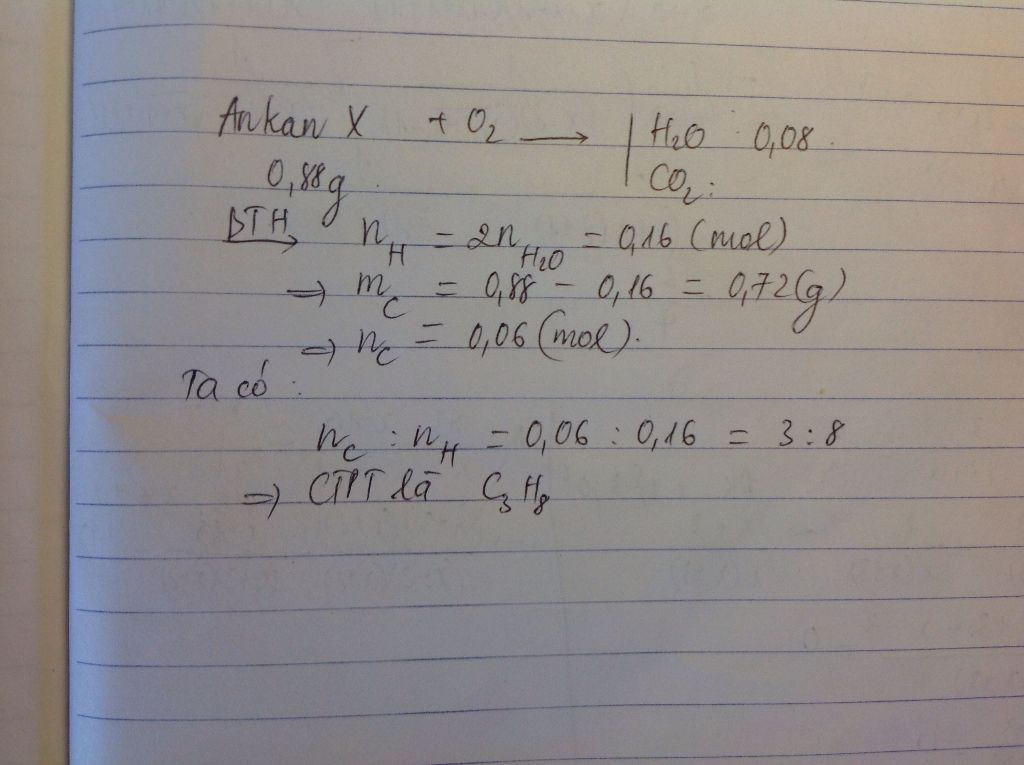 Ankan X + O₂ ⟶ | H₂O : 0,08
0,88g | CO₂ :
BTH ⟶ n_H = 2n_H₂O = 0,16 (mol)
⇒ m_C = 0,88 - 0,16 = 0,72 (g)
⇒ n_C = 0,06 (mol).
Ta có :
n_C : n_H = 0,06 : 0,16 = 3 : 8
⇒ CTPT là C₃H₈